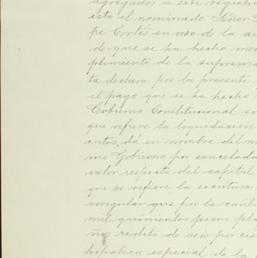 agregados a este registro
isto el nominado Señor
pe Cortés en uso de la au
de que se ha hecho men
plimiento de la suprema
ta declara por la presente
el pago que se ha hecho
Gobierno Constitucional
que refiere la liquidacion
antos, dá en nombre del
mo Gobierno por cancelada
valor respecto del capital
que se refiere la escritura
singular que por la cant
mil quinientos pesos plat
ños redito de seis por cie
hipoteca especial de la